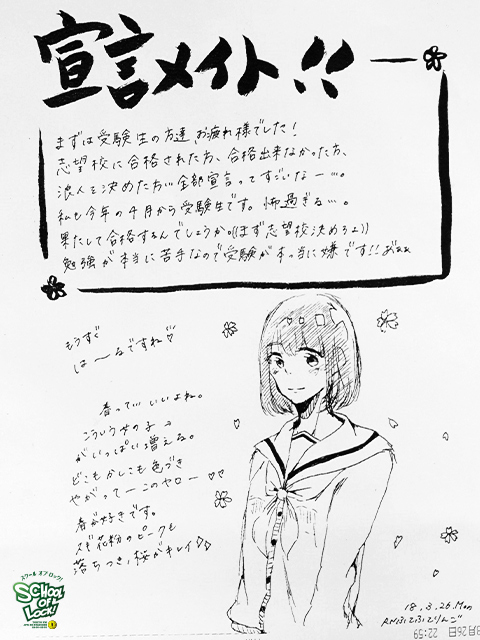 宣言メイト!!
まずは受験生の方達、お疲れ様でした!
志望校に合格された方、合格出来なかった方、
浪人を決めた方…全部宣言ってすごいなー…。
私も今年の4月から受験生です。怖過ぎる…。
果たして合格するんでしょうか。((まず志望校決めろよ))
勉強が本当に苦手なので受験が本っ当に嫌です!!おぇぇ
もうすぐ
は〜るですね♡
春って…いいよね。
こういう女の子→
がいっぱい増える。
どこもかしこも色づき
やがって──このヤロー♡♡
春が好きです。
スギ花粉のピークも
落ちつき、桜がキレイ♡♡
スクール オブ ロック!
SCHOOL OF LOCK!
18.3.26.Mon
RNふじふじりんご
3月26日 22:59